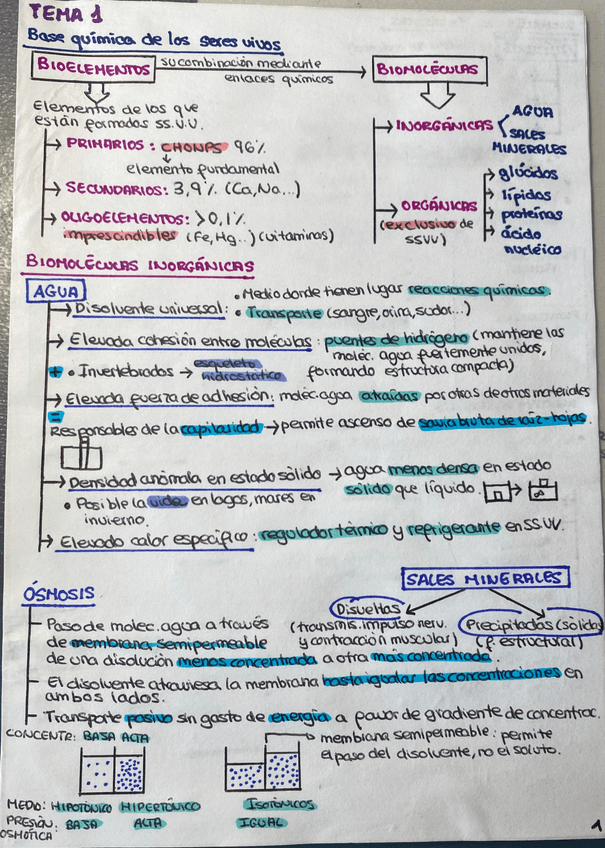 TEMA 1
Base química de los seres vivos
BIOELEMENTOS su combinación mediante enlaces químicos BIOMOLÉCULAS
Elementos de los que
están formados SS.V.V.
→ PRIMARIOS: CHONPS 96%
↓
elemento fundamental
→ SECUNDARIOS: 3,9% (Ca, Na...)
→ OLIGOELEMENTOS: >0,1%
imprescindibles (Fe, Hg..) (vitaminas)
→ INORGÁNICAS
AGUA
SALES
MINERALES
→ ORGÁNICAS
(exclusivo de
SSVV)
→ glúcidos
→ lípidos
→ proteínas
→ ácido
nucléico
BIOMOLÉCULAS INORGÁNICAS
AGUA
→ Disolvente universal: • Medio donde tienen lugar reacciones químicas.
• Transporte (sangre, orina, sudor...)
→ Elevada cohesión entre moléculas: puentes de hidrógeno (mantiene las
moléc. agua fuertemente unidos,
formando estructura compacta)
+ • Invertebrados → esqueleto
hidrostático
→ Elevada fuerza de adhesión: moléc. agua atraídas por otras de otros materiales
=
Responsables de la capilaridad → permite ascenso de savia bruta de raíz-hojas.
→ Densidad anómala en estado sólido → agua menos densa en estado
sólido que líquido.
• Posible la vida en lagos, mares en
invierno.
→ Elevado calor específico: regulador térmico y refrigerante en SSVV.
SALES MINERALES
Disueltas
(transmis. impulso nerv.
y contracción muscular)
Precipitadas (sólidas)
(f. estructural)
ÓSMOSIS
- Paso de molec. agua a través
de membrana semipermeable
de una disolución menos concentrada a otra más concentrada.
- El disolvente atraviesa la membrana hasta igualar las concentraciones en
ambos lados.
- Transporte pasivo sin gasto de energía a favor de gradiente de concentrac.
CONCENTR: BAJA ALTA
→ membrana semipermeable: permite
el paso del disolvente, no el soluto.
MEDIO: HIPOTÓNICO HIPERTÓNICO ISOTÓNICOS
PRESIÓN: BAJA ALTA IGUAL
OSMÓTICA
1